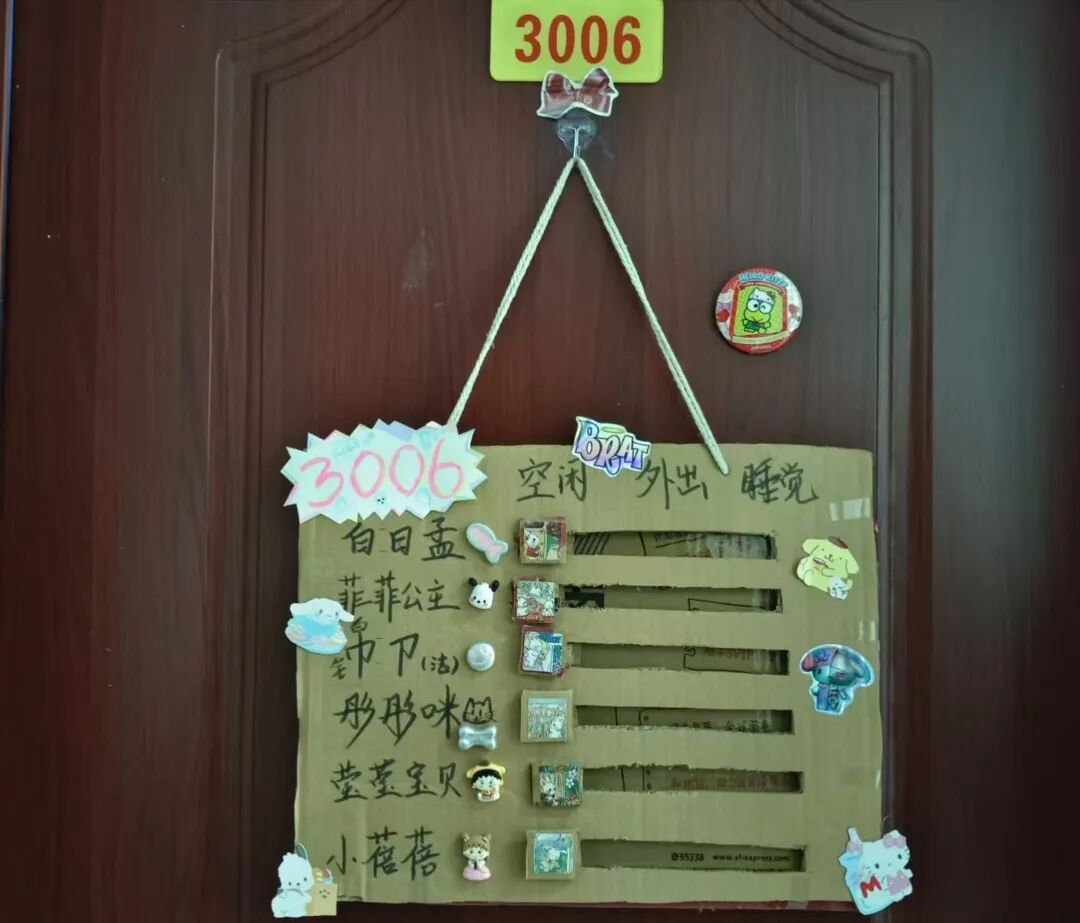 3006
HELLO KITTY
BRAT
3006
空闲 外出 睡觉
白日孟
菲菲公主
(洁)
彤彤咪
莹莹宝贝
小蓓蓓
95338 www.sf-express.com